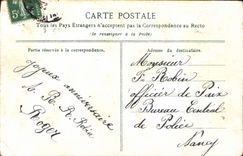 CARTE POSTALE
Tous les Pays Etrangers n'acceptent pas la Correspondance au Recto
(Se renseigner à la Poste)
Partie réservée à la correspondance.
Adresse du destinataire.
Joyeux anniversaire
A. R. R. Robin
Roger
Monsieur
Robin
officier de Paix
Bureau Central
de Police
Nancy